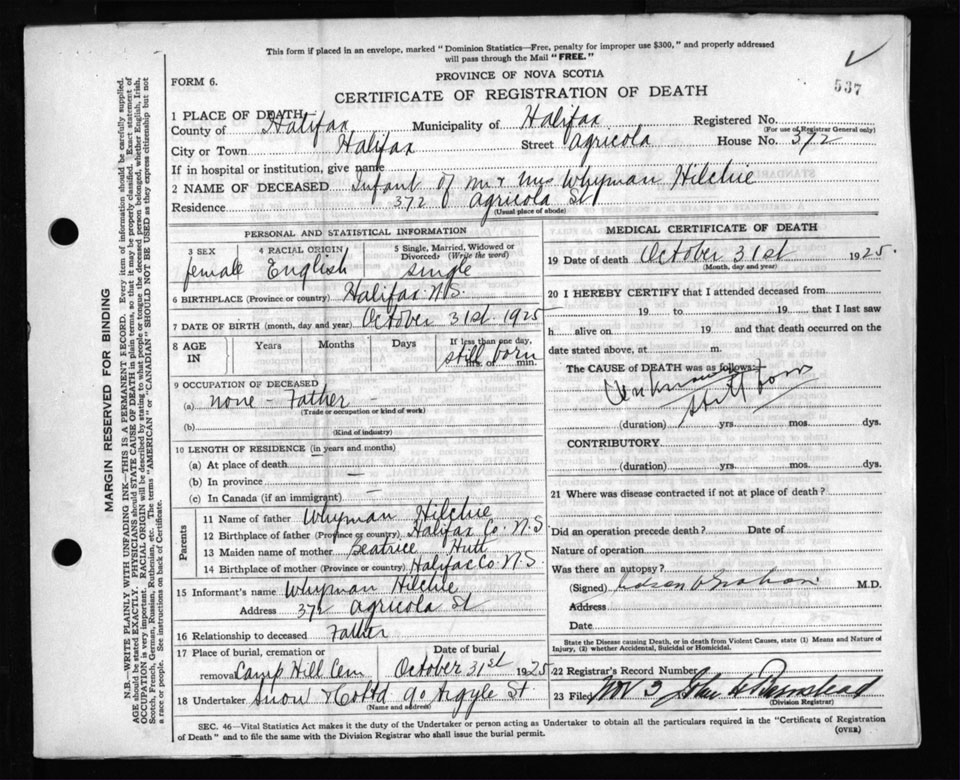 This form if placed in an envelope, marked "Dominion Statistics—Free, penalty for improper use $300," and properly addressed
will pass through the Mail "FREE."
537
FORM 6.
PROVINCE OF NOVA SCOTIA
CERTIFICATE OF REGISTRATION OF DEATH
1 PLACE OF DEATH
County of Halifax Municipality of Halifax Registered No.
(For use of Registrar General only)
City or Town Halifax Street Agricola House No. 372
If in hospital or institution, give name
2 NAME OF DECEASED Infant of Mr & Mrs Whyman Hilchie
Residence 372 Agricola St
(Usual place of abode)
PERSONAL AND STATISTICAL INFORMATION
3 SEX 4 RACIAL ORIGIN 5 Single, Married, Widowed or
Divorced: (Write the word)
female English single
6 BIRTHPLACE (Province or country) Halifax N.S.
7 DATE OF BIRTH (month, day and year) October 31st. 1925
8 AGE IN Years Months Days If less than one day,
still born
hrs. or min.
9 OCCUPATION OF DECEASED
(a) none - Father -
(Trade or occupation or kind of work)
(b)
(Kind of industry)
10 LENGTH OF RESIDENCE (in years and months)
(a) At place of death
(b) In province —
(c) In Canada (if an immigrant) —
Parents
11 Name of father Whyman Hilchie
12 Birthplace of father (Province or country) Halifax Co. N.S
13 Maiden name of mother Beatrice Hutt
14 Birthplace of mother (Province or country) Halifax Co. N.S.
15 Informant's name Whyman Hilchie
Address 372 Agricola St
16 Relationship to deceased Father
17 Place of burial, cremation or Date of burial
removal Camp Hill Cem October 31st 1925
18 Undertaker Snow & Co Ltd 90 Argyle St.
(Name and address)
MEDICAL CERTIFICATE OF DEATH
19 Date of death October 31st 1925.
(Month, day and year)
20 I HEREBY CERTIFY that I attended deceased from
19 to 19 that I last saw
h alive on 19 and that death occurred on the
date stated above, at m.
The CAUSE OF DEATH was as follows:
Unknown
Still born
(duration) yrs. mos. dys.
CONTRIBUTORY
(duration) yrs. mos. dys.
21 Where was disease contracted if not at place of death?
Did an operation precede death? Date of
Nature of operation
Was there an autopsy?
(Signed) M.D.
Address
Date
State the Disease causing Death, or in death from Violent Causes, state (1) Means and Nature of
Injury, (2) whether Accidental, Suicidal or Homicidal.
22 Registrar's Record Number
23 Filed Nov 3
(Division Registrar)
SEC. 46—Vital Statistics Act makes it the duty of the Undertaker or person acting as Undertaker to obtain all the particulars required in the "Certificate of Registration
of Death" and to file the same with the Division Registrar who shall issue the burial permit.
(OVER)
MARGIN RESERVED FOR BINDING
N.B.—WRITE PLAINLY WITH UNFADING INK—THIS IS A PERMANENT RECORD. Every item of information should be carefully supplied.
AGE should be stated EXACTLY. PHYSICIANS should STATE CAUSE OF DEATH in plain terms, so that it may be properly classified. Exact statement of
OCCUPATION is very important. RACIAL ORIGIN will be described by stating to what people or tongue the deceased person belonged, whether English, Irish,
Scotch, French, German, Russian, Ruthenian, etc. The terms "AMERICAN" or "CANADIAN" SHOULD NOT BE USED as they express citizenship but not
a race or people. See instructions on back of Certificate.